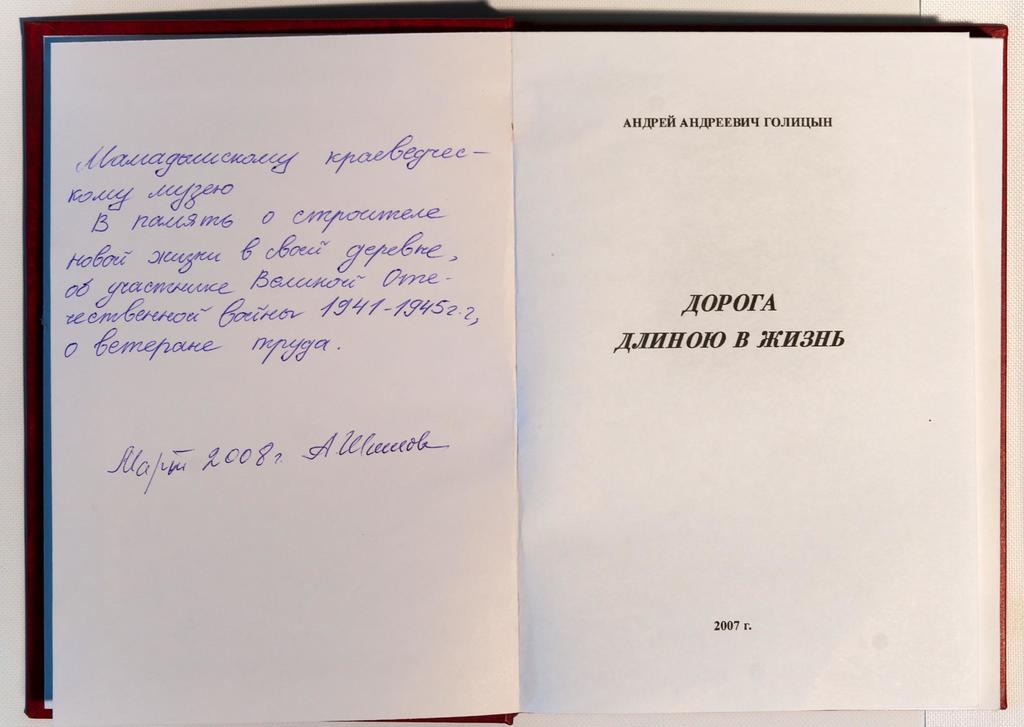 Мамадышскому краеведчес-
кому музею
В память о строителе
новой жизни в своей деревне,
об участнике Великой Оте-
чественной войны 1941-1945г.г,
о ветеране труда.
Март 2008г. А
АНДРЕЙ АНДРЕЕВИЧ ГОЛИЦЫН
ДОРОГА
ДЛИНОЮ В ЖИЗНЬ
2007 г.